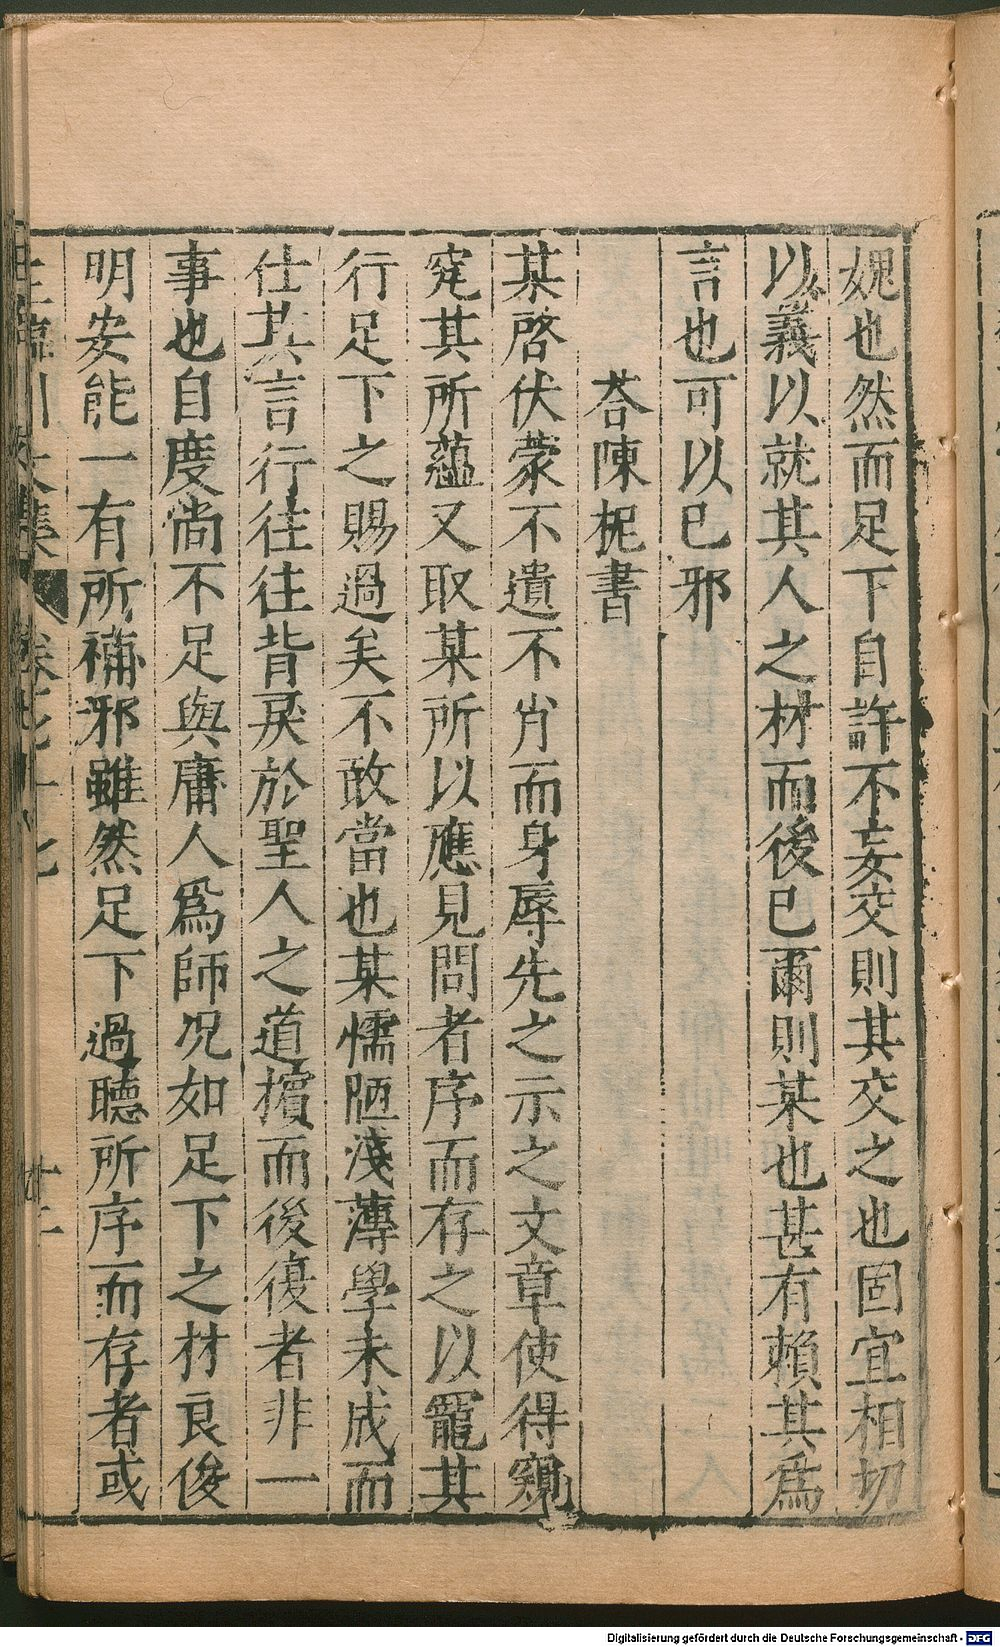 媿也然而足下自許不妄交則其交之也固宜相切
以義以就其人之材而後已爾則某也甚有賴其為
言也可以已邪
荅陳柅書
某啓伏蒙不遺不肖而身辱先之示之文章使得窺
究其所蘊又取某所以應見問者序而存之以寵其
行足下之賜過矣不敢當也某懦陋淺薄學未成而
仕其言行往往背戾於聖人之道擯而後復者非一
事也自度尚不足與庸人爲師况如足下之材良俊
明安能一有所補邪雖然足下過聽所序而存者或
Digitalisierung gefördert durch die Deutsche Forschungsgemeinschaft - DFG